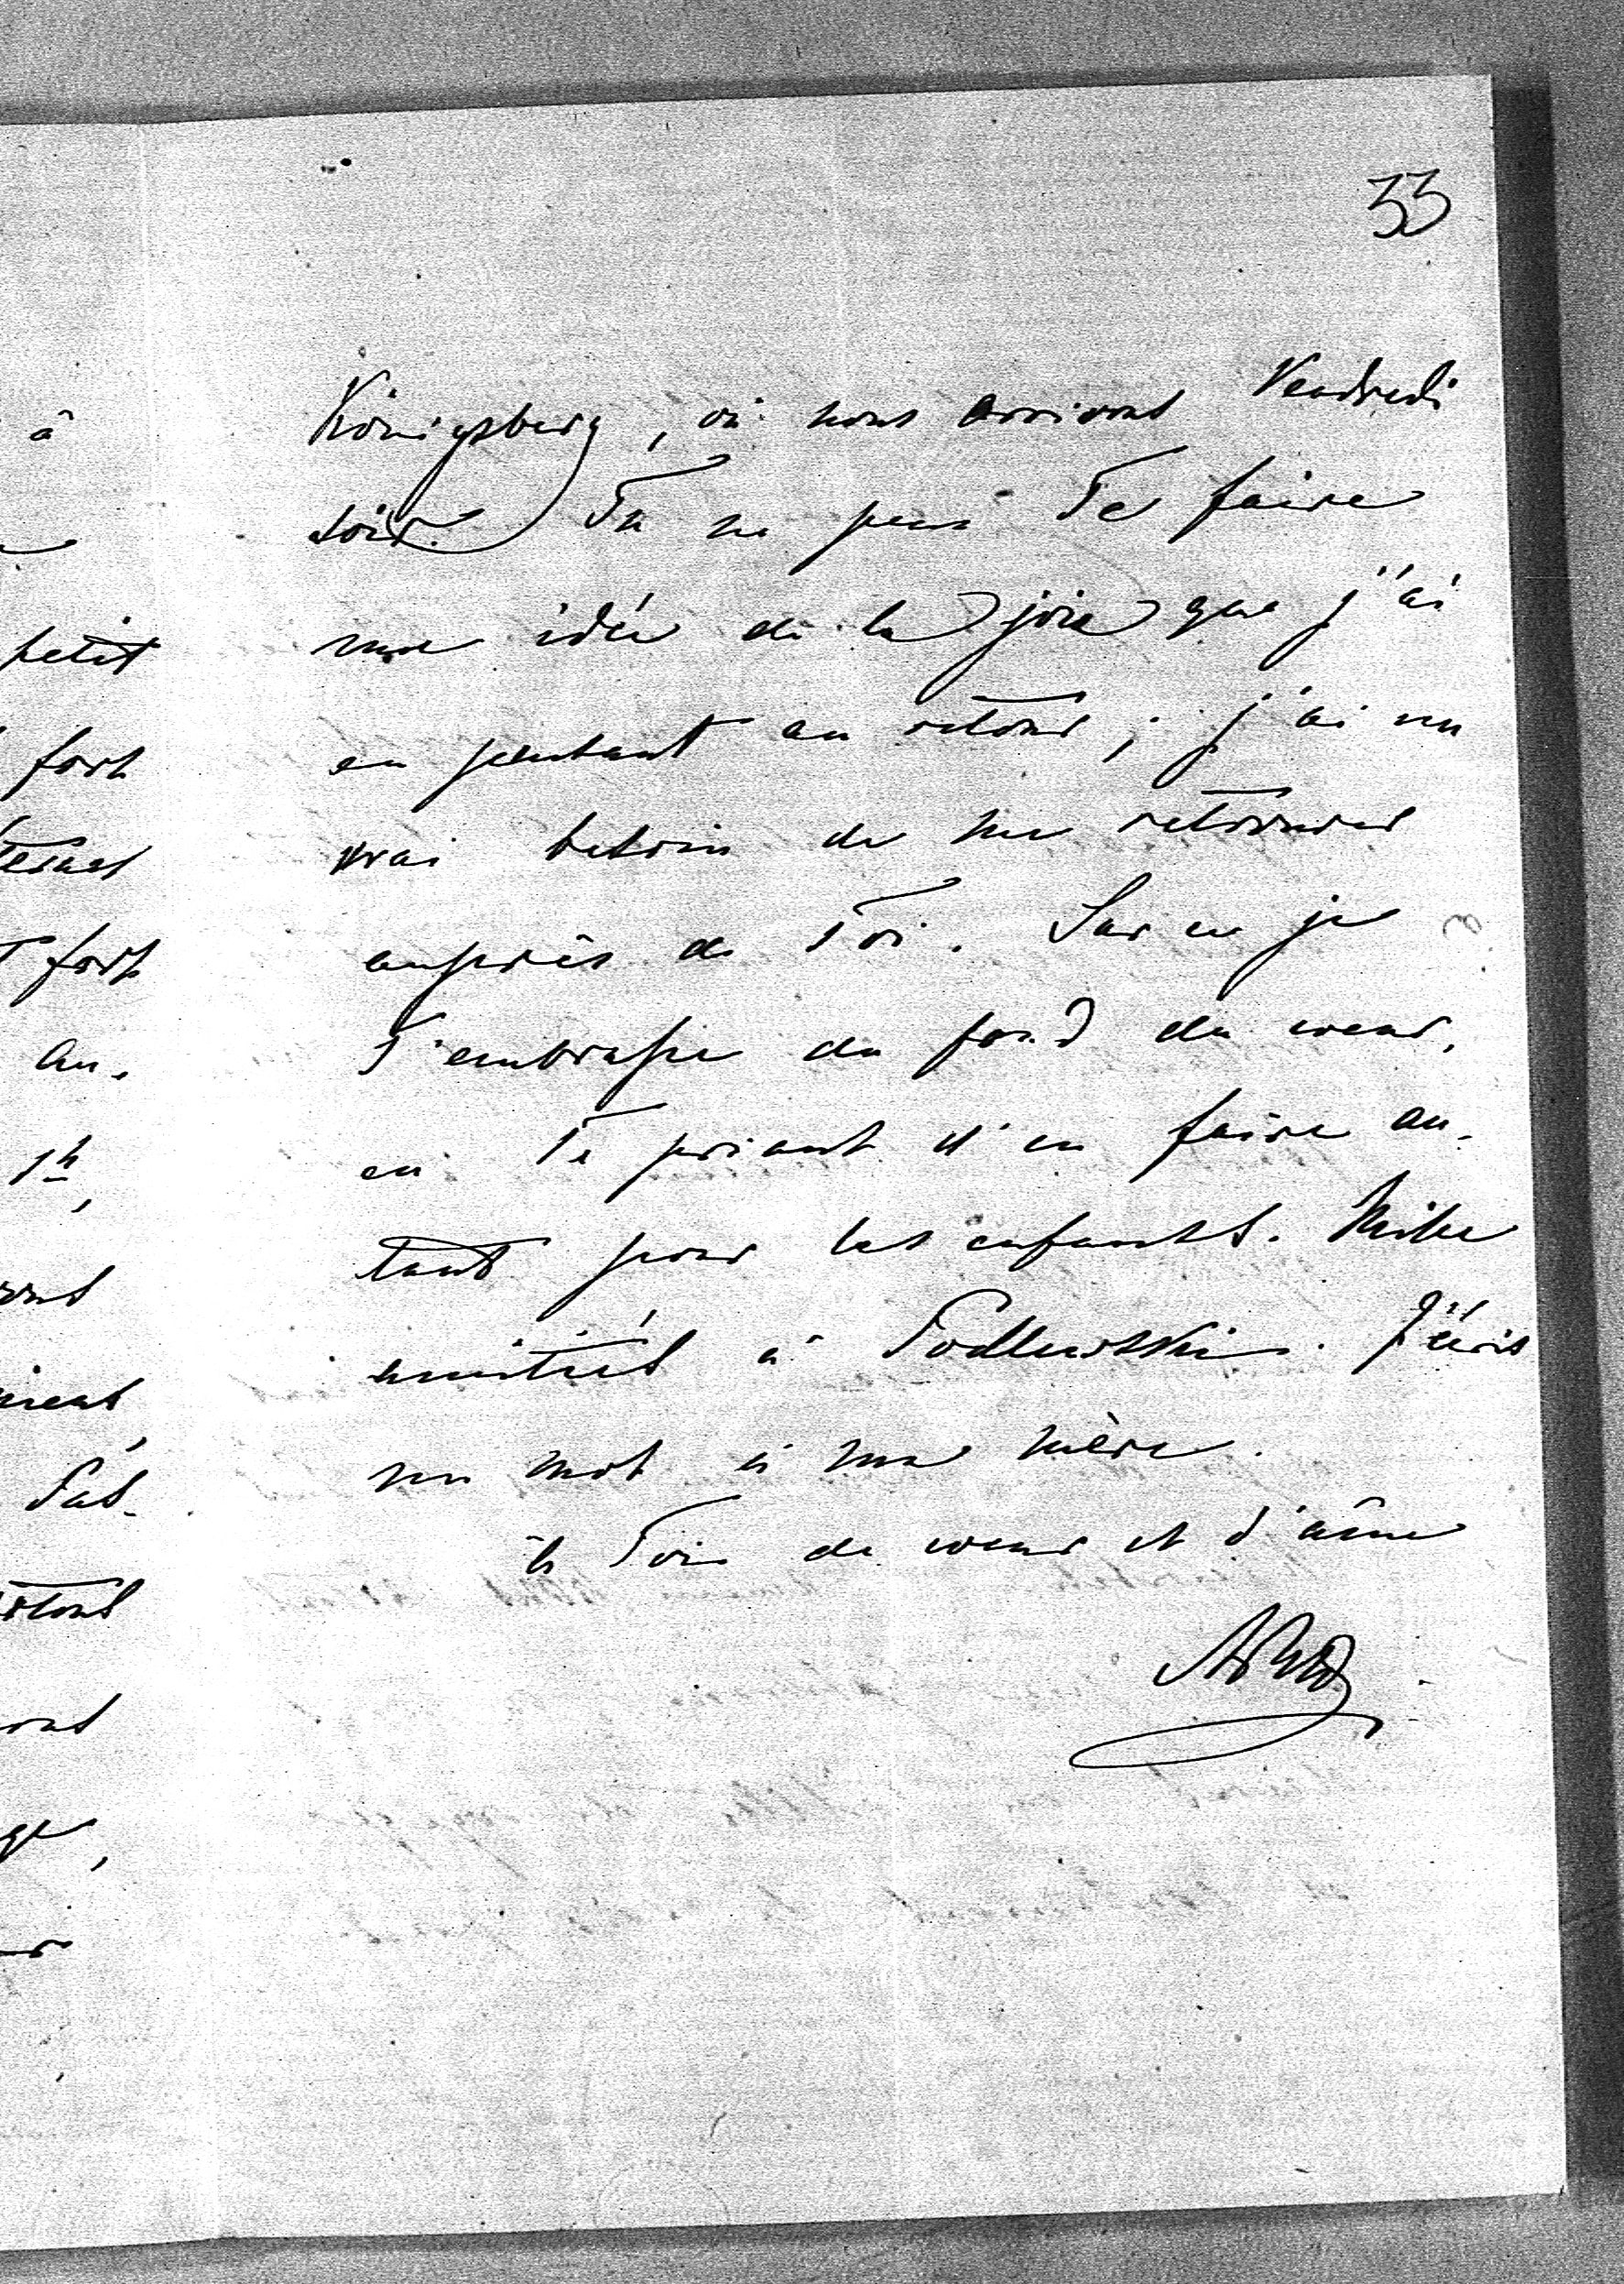 33
Königsberg, où nous arrivons Vendredi
soir. Tu ne peux Te faire
une idée de la joie que j'ai
en pensant au retour; j'ai un
vrai besoin de me retrouver
auprès de Toi. Sur ce je
T'embrasse du fond du coeur,
en Te priant d'en faire au-
tant pour les enfants. Mille
amitiés à Podlewski. J'écris
un mot à ma mère.
à Toi de coeur et d'âme
à
petit
fort
fort
au-
1h,